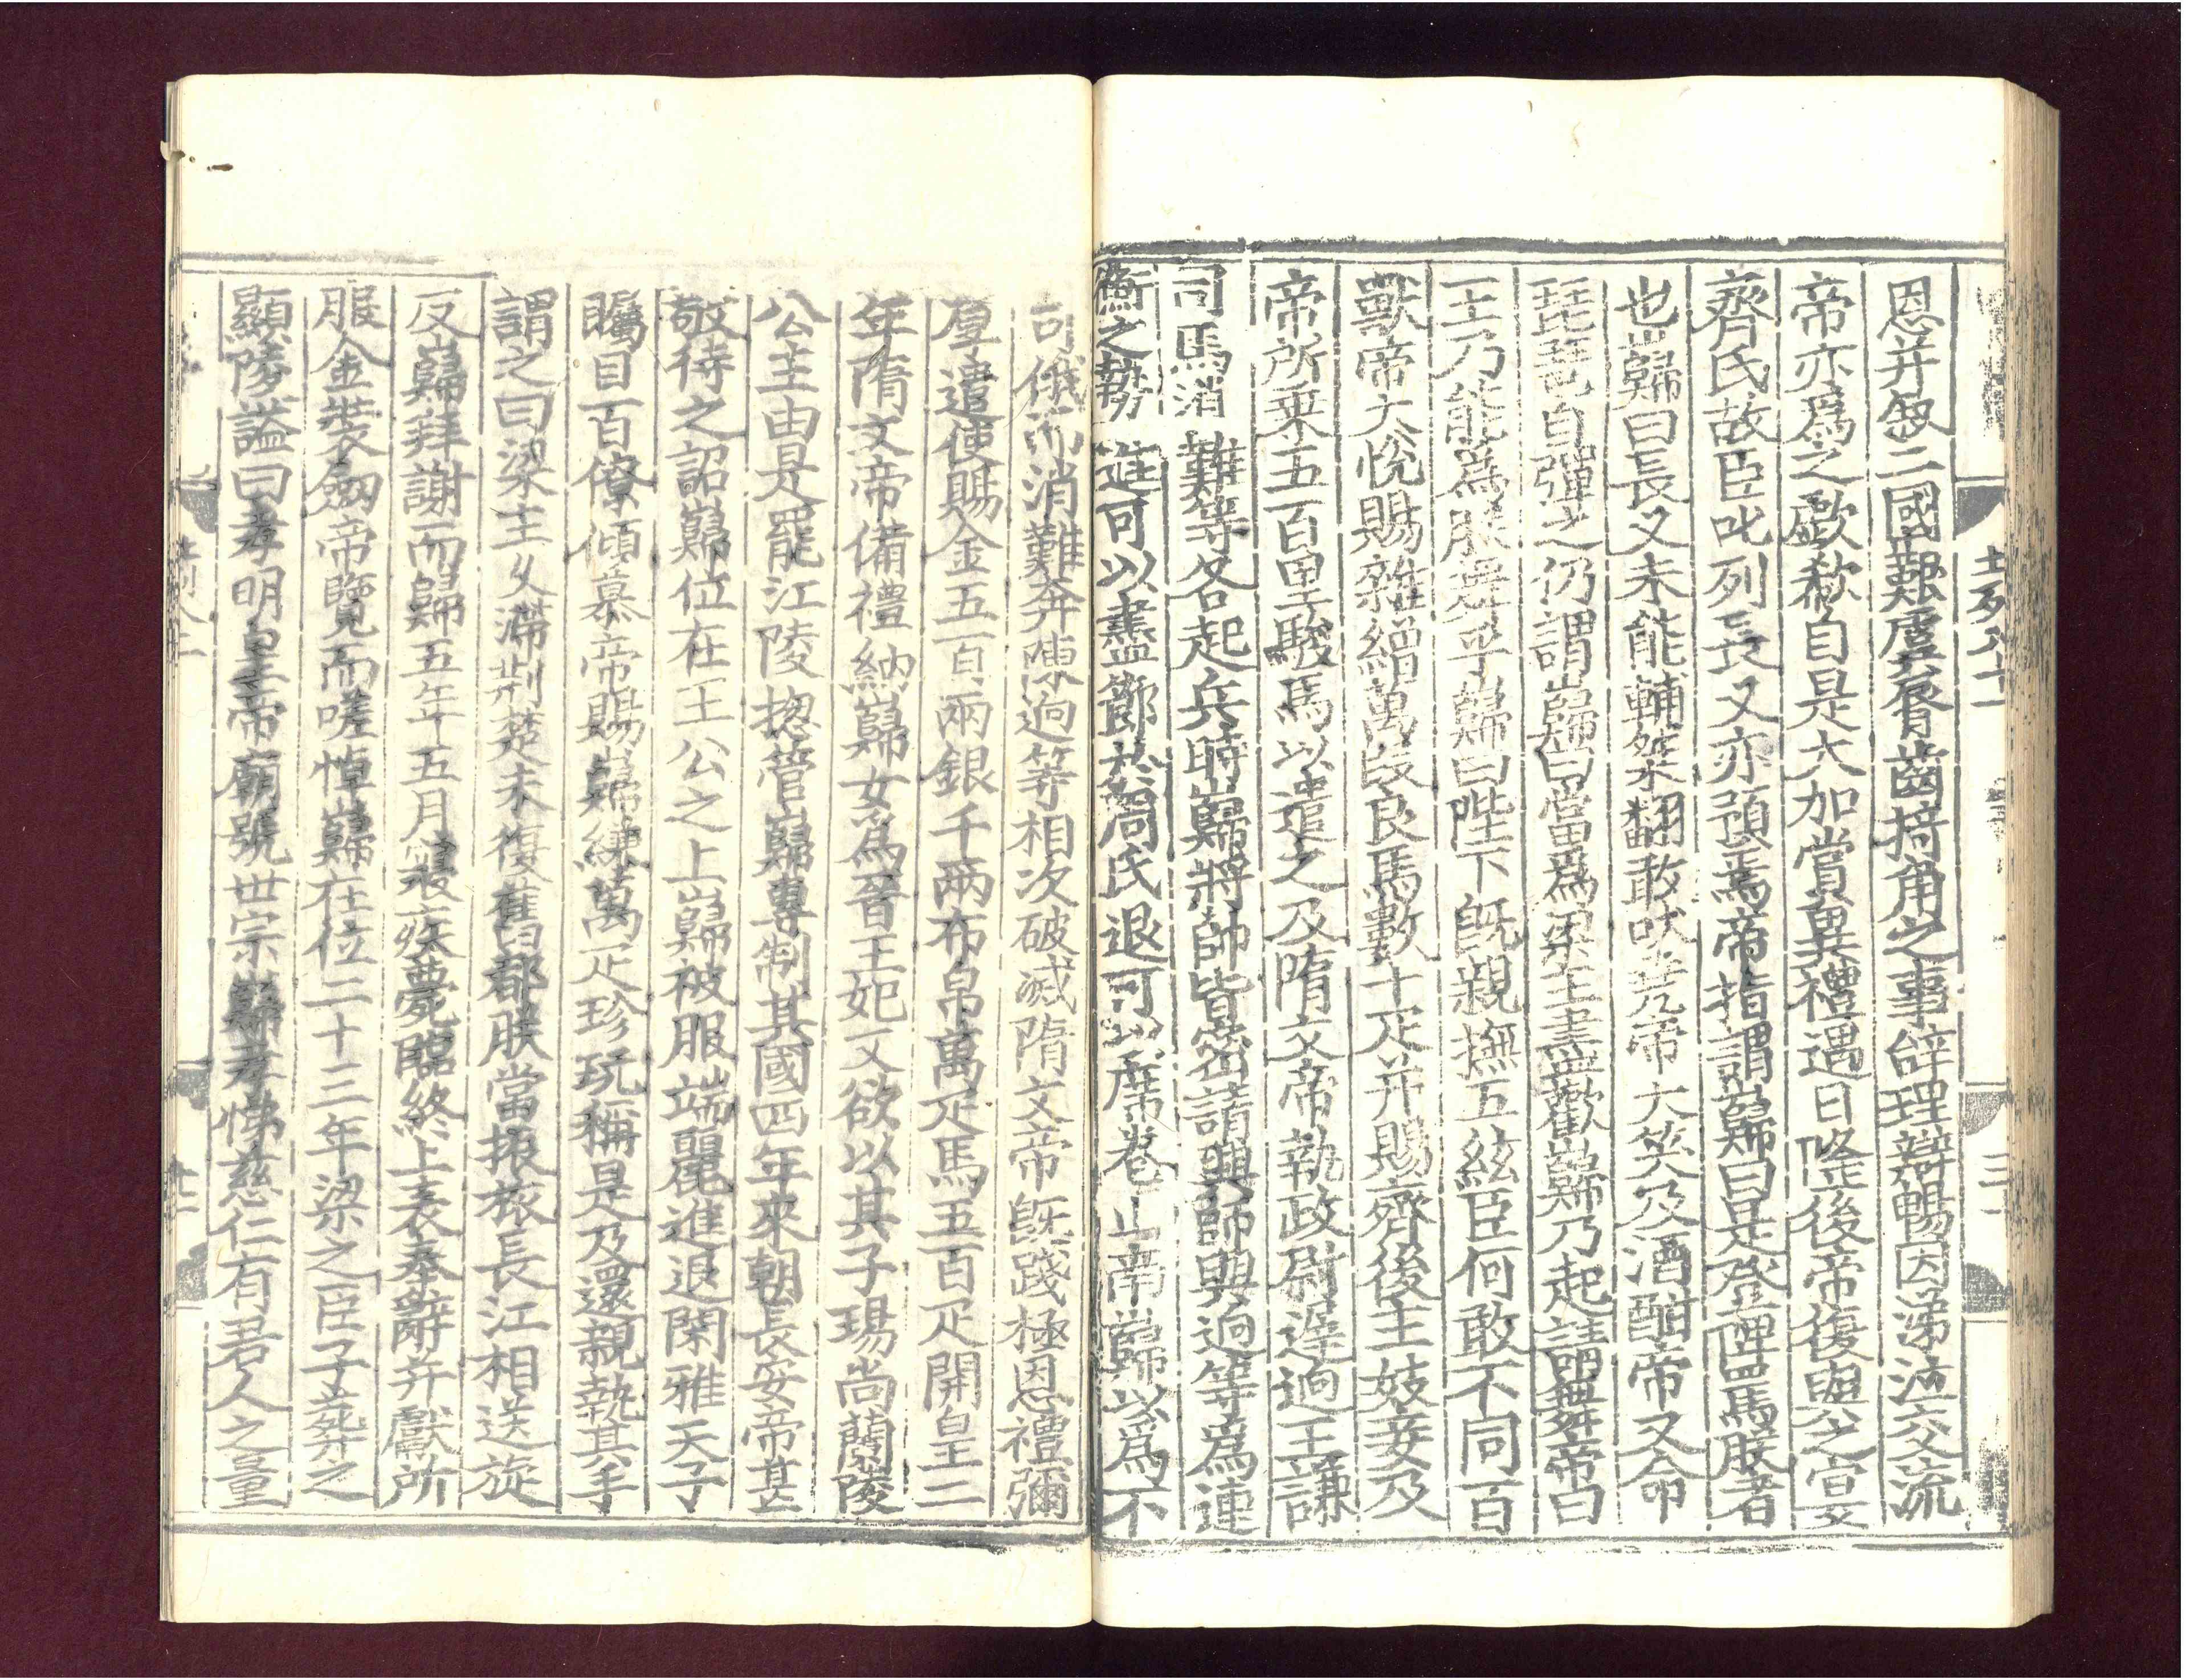 恩并叙二國艱虞脣齒掎角之事辭理辯暢因涕泣交流
帝亦爲之歔欷自是大加賞異禮遇日隆後帝復與之宴
齊氏故臣叱列長叉亦預焉帝指謂巋曰是登陴罵朕者
也巋曰長叉未能輔桀翻敢吠堯帝大笑及酒酣帝又命
琵琶自彈之仍謂巋曰當爲梁主盡歡巋乃起請舞帝曰
王乃能爲朕舞乎巋曰陛下旣親撫五絃臣何敢不同百
獸帝大悅賜雜繒萬段良馬數十疋并賜齊後主妓妾及
帝所乘五百里駿馬以遺之及隋文帝執政尉遲迥王謙
司馬消難等各起兵時巋將帥皆密請興師與迥等爲連
衡之勢進可以盡節於周氏退可以席卷山南巋以爲不
可俄而消難奔陳迥等相次破滅隋文帝旣踐極恩禮彌
厚遣使賜金五百兩銀千兩布帛萬疋馬五百疋開皇二
年隋文帝備禮納巋女爲晉王妃又欲以其子瑒尚蘭陵
公主由是罷江陵揔管巋專制其國四年來朝長安帝甚
敬待之詔巋位在王公之上巋被服端麗進退閑雅天子
矚目百僚傾慕帝賜巋縑萬疋珍玩稱是及還親執其手
謂之曰梁主久滯荊楚未復舊都朕當振旅長江相送旋
反巋拜謝而歸五年五月寢疾薨臨終上表奉辭并獻所
服金裝劒帝覽而嗟悼巋在位二十三年梁之臣子葬之
顯陵謚曰孝明皇帝廟號世宗巋孝悌慈仁有君人之量